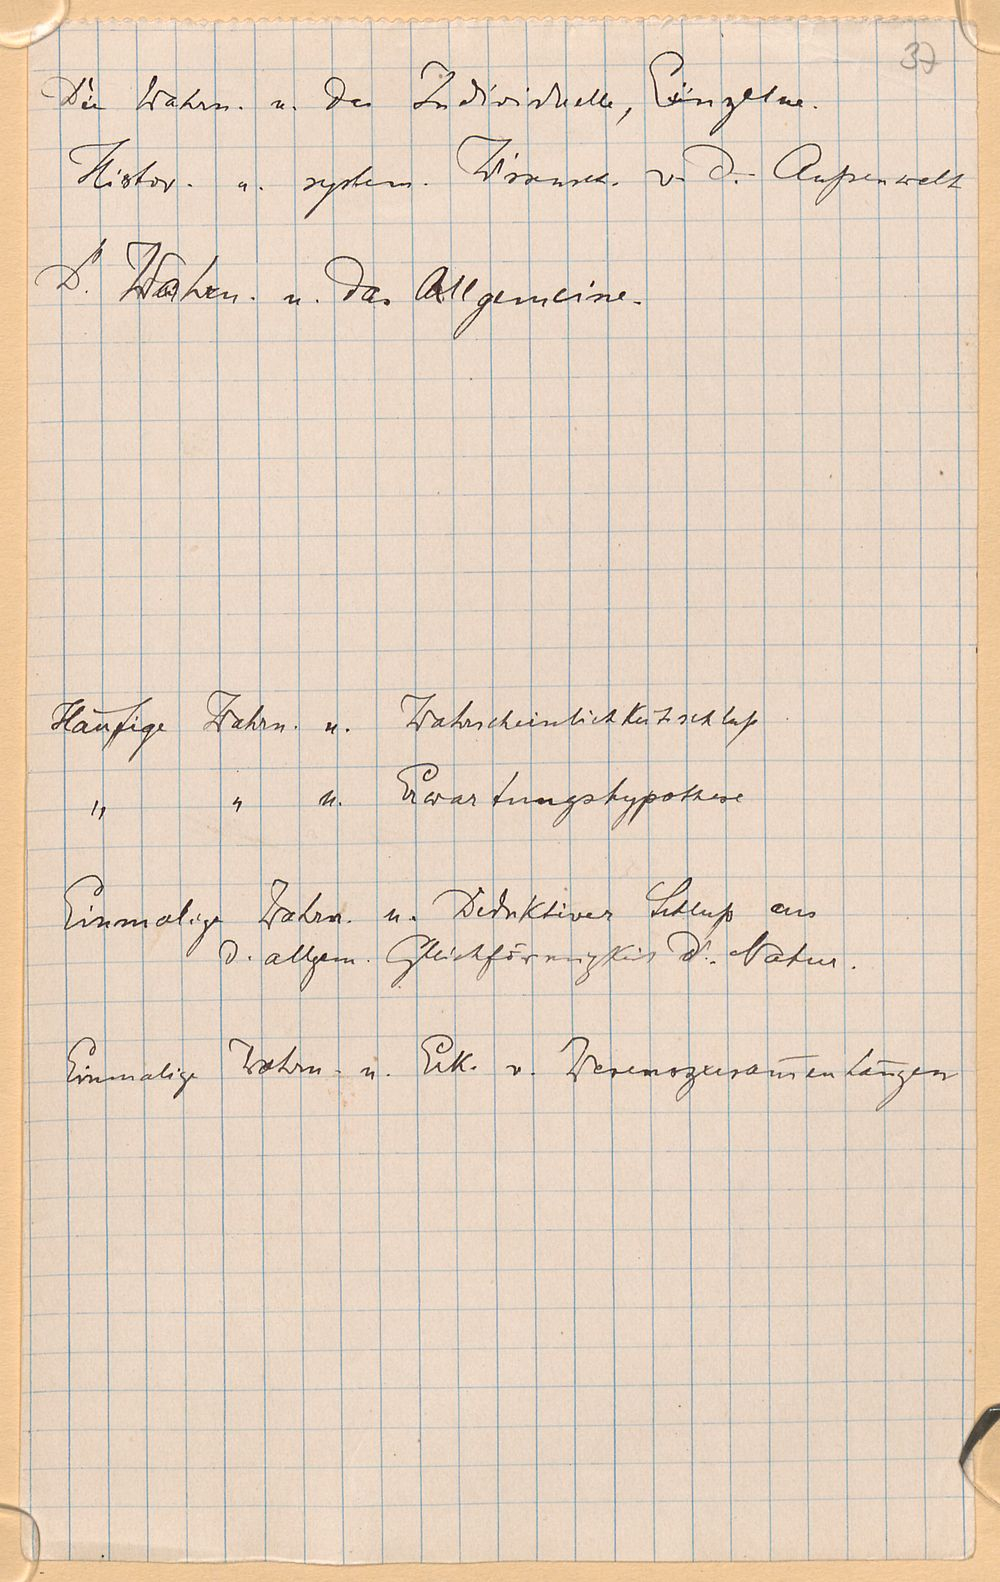 37
Die Wahrn. u. das Individuelle, Einzelne.
Histor. u. system. Wissensch. v. d. Außenwelt
D. Wahrn. u. das Allgemeine.
Häufige Wahrn. u. Wahrscheinlichkeitsschluß
" " u. Erwartungshypothese
Einmalige Wahrn. u. Deduktiver Schluß aus
d. allgem. Gleichförmigkeit d. Natur.
Einmalige Wahrn. u. Erk. v. Wesenszusam̅enhängen